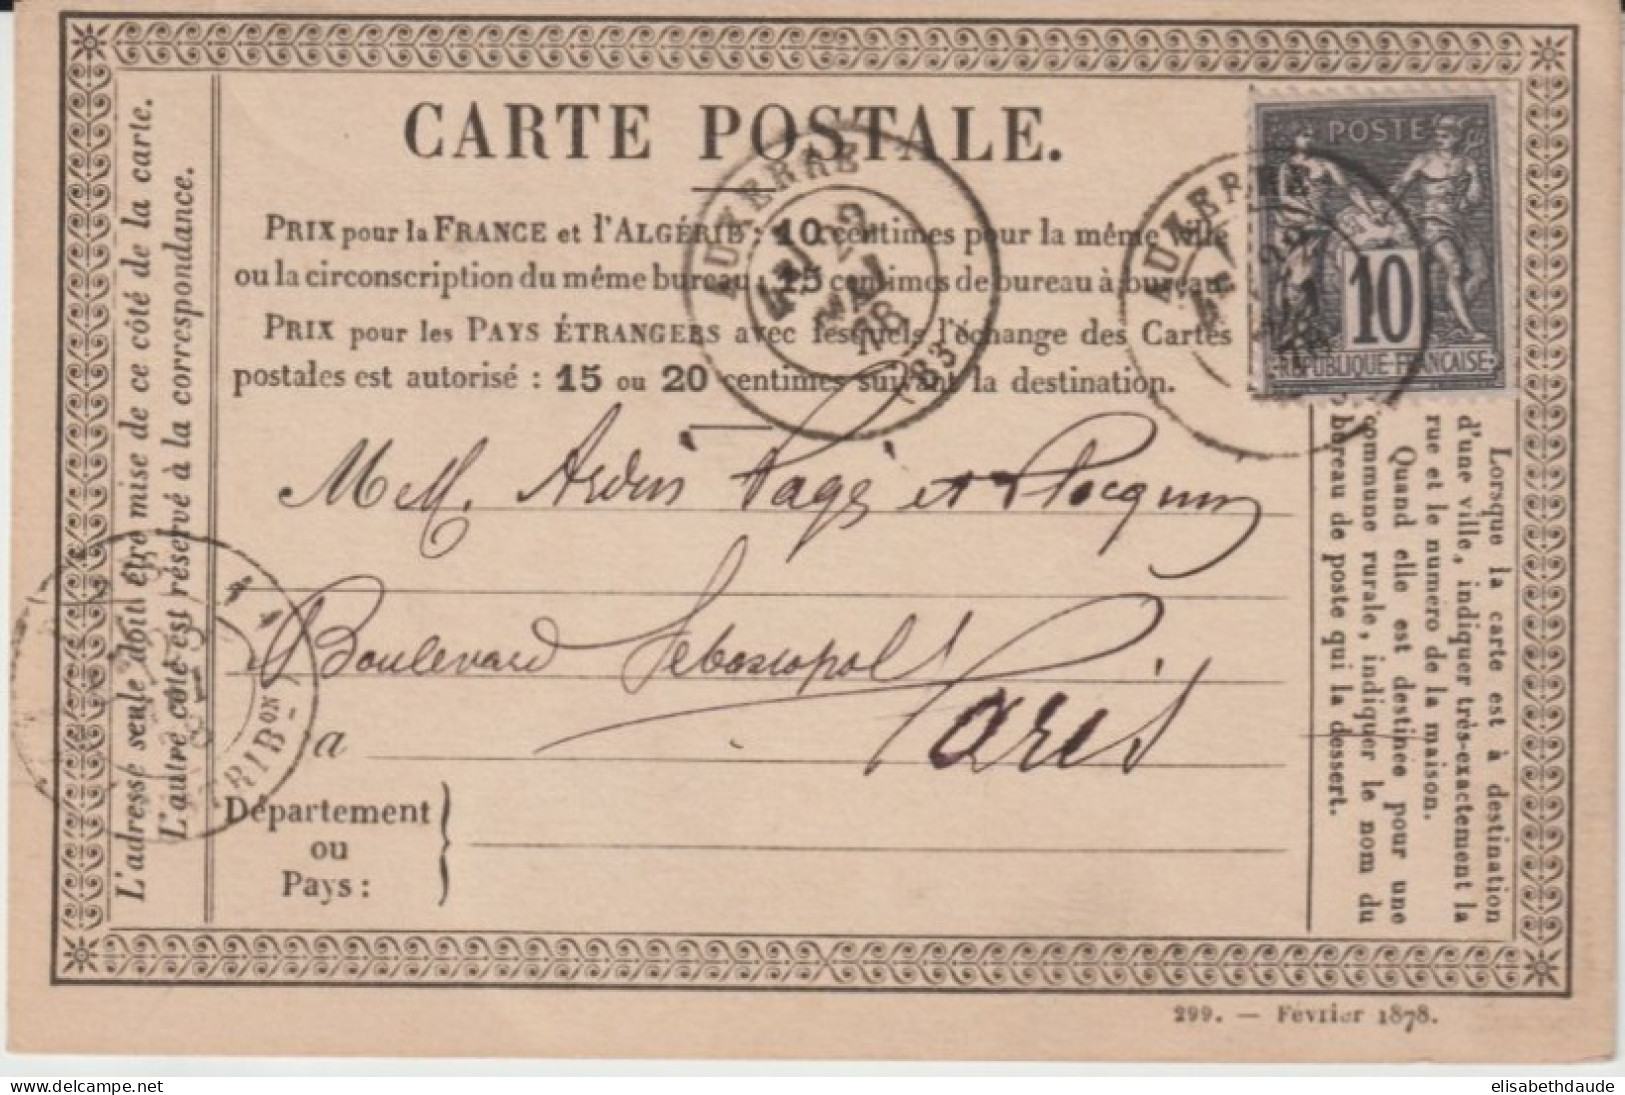 CARTE POSTALE.
PRIX pour la FRANCE et l'ALGÉRIE : 10 centimes pour la même ville
ou la circonscription du même bureau ; 15 centimes de bureau à bureau.
PRIX pour les PAYS ÉTRANGERS avec lesquels l'échange des Cartes
postales est autorisé : 15 ou 20 centimes suivant la destination.
L'adresse seule doit être mise de ce côté de la carte.
L'autre côté est réservé à la correspondance.
AUXERRE
2
MAI
78
(83)
AUXERRE
POSTE
10
REPUBLIQUE FRANÇAISE
M M. Ardin Pagé et
Boulevard Sebastopol
à
Paris
Département
ou
Pays :
Lorsque la carte est à destination
d'une ville, indiquer très-exactement la
rue et le numéro de la maison.
Quand elle est destinée pour une
commune rurale, indiquer le nom du
bureau de poste qui la dessert.
TRIBON
299. — Février 1878.
delcampe.net
elisabethdaude